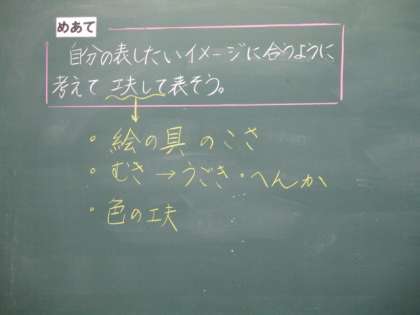 めあて
自分の表したいイメージに合うように
考えて工夫して表そう。
・絵の具のこさ
・むき→うごき・へんか
・色の工夫